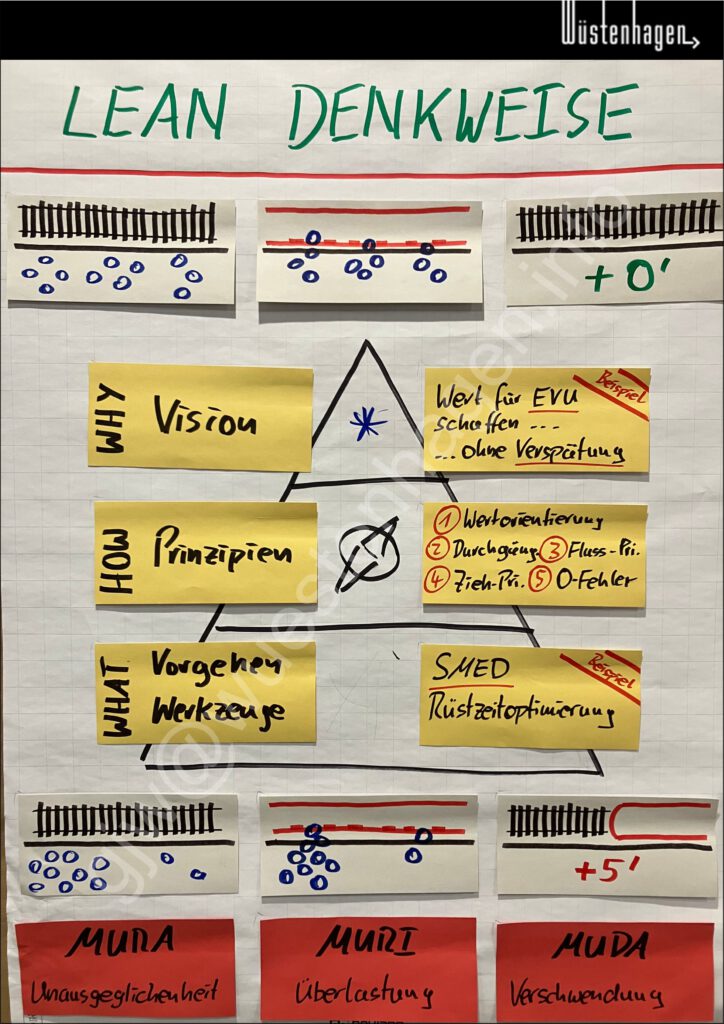 Wüstenhagen
LEAN DENKWEISE
+0'
WHY
Vision
Wert für EVU
schaffen ...
... ohne Verspätung
Beispiel
HOW
Prinzipien
① Wertorientierung
② Durchgäng. ③ Fluss-Pri.
④ Zieh-Pri. ⑤ 0-Fehler
WHAT
Vorgehen
Werkzeuge
SMED
Rüstzeitoptimierung
Beispiel
+5'
MURA
Unausgeglichenheit
MURI
Überlastung
MUDA
Verschwendung
gjw@wuestenhagen.info